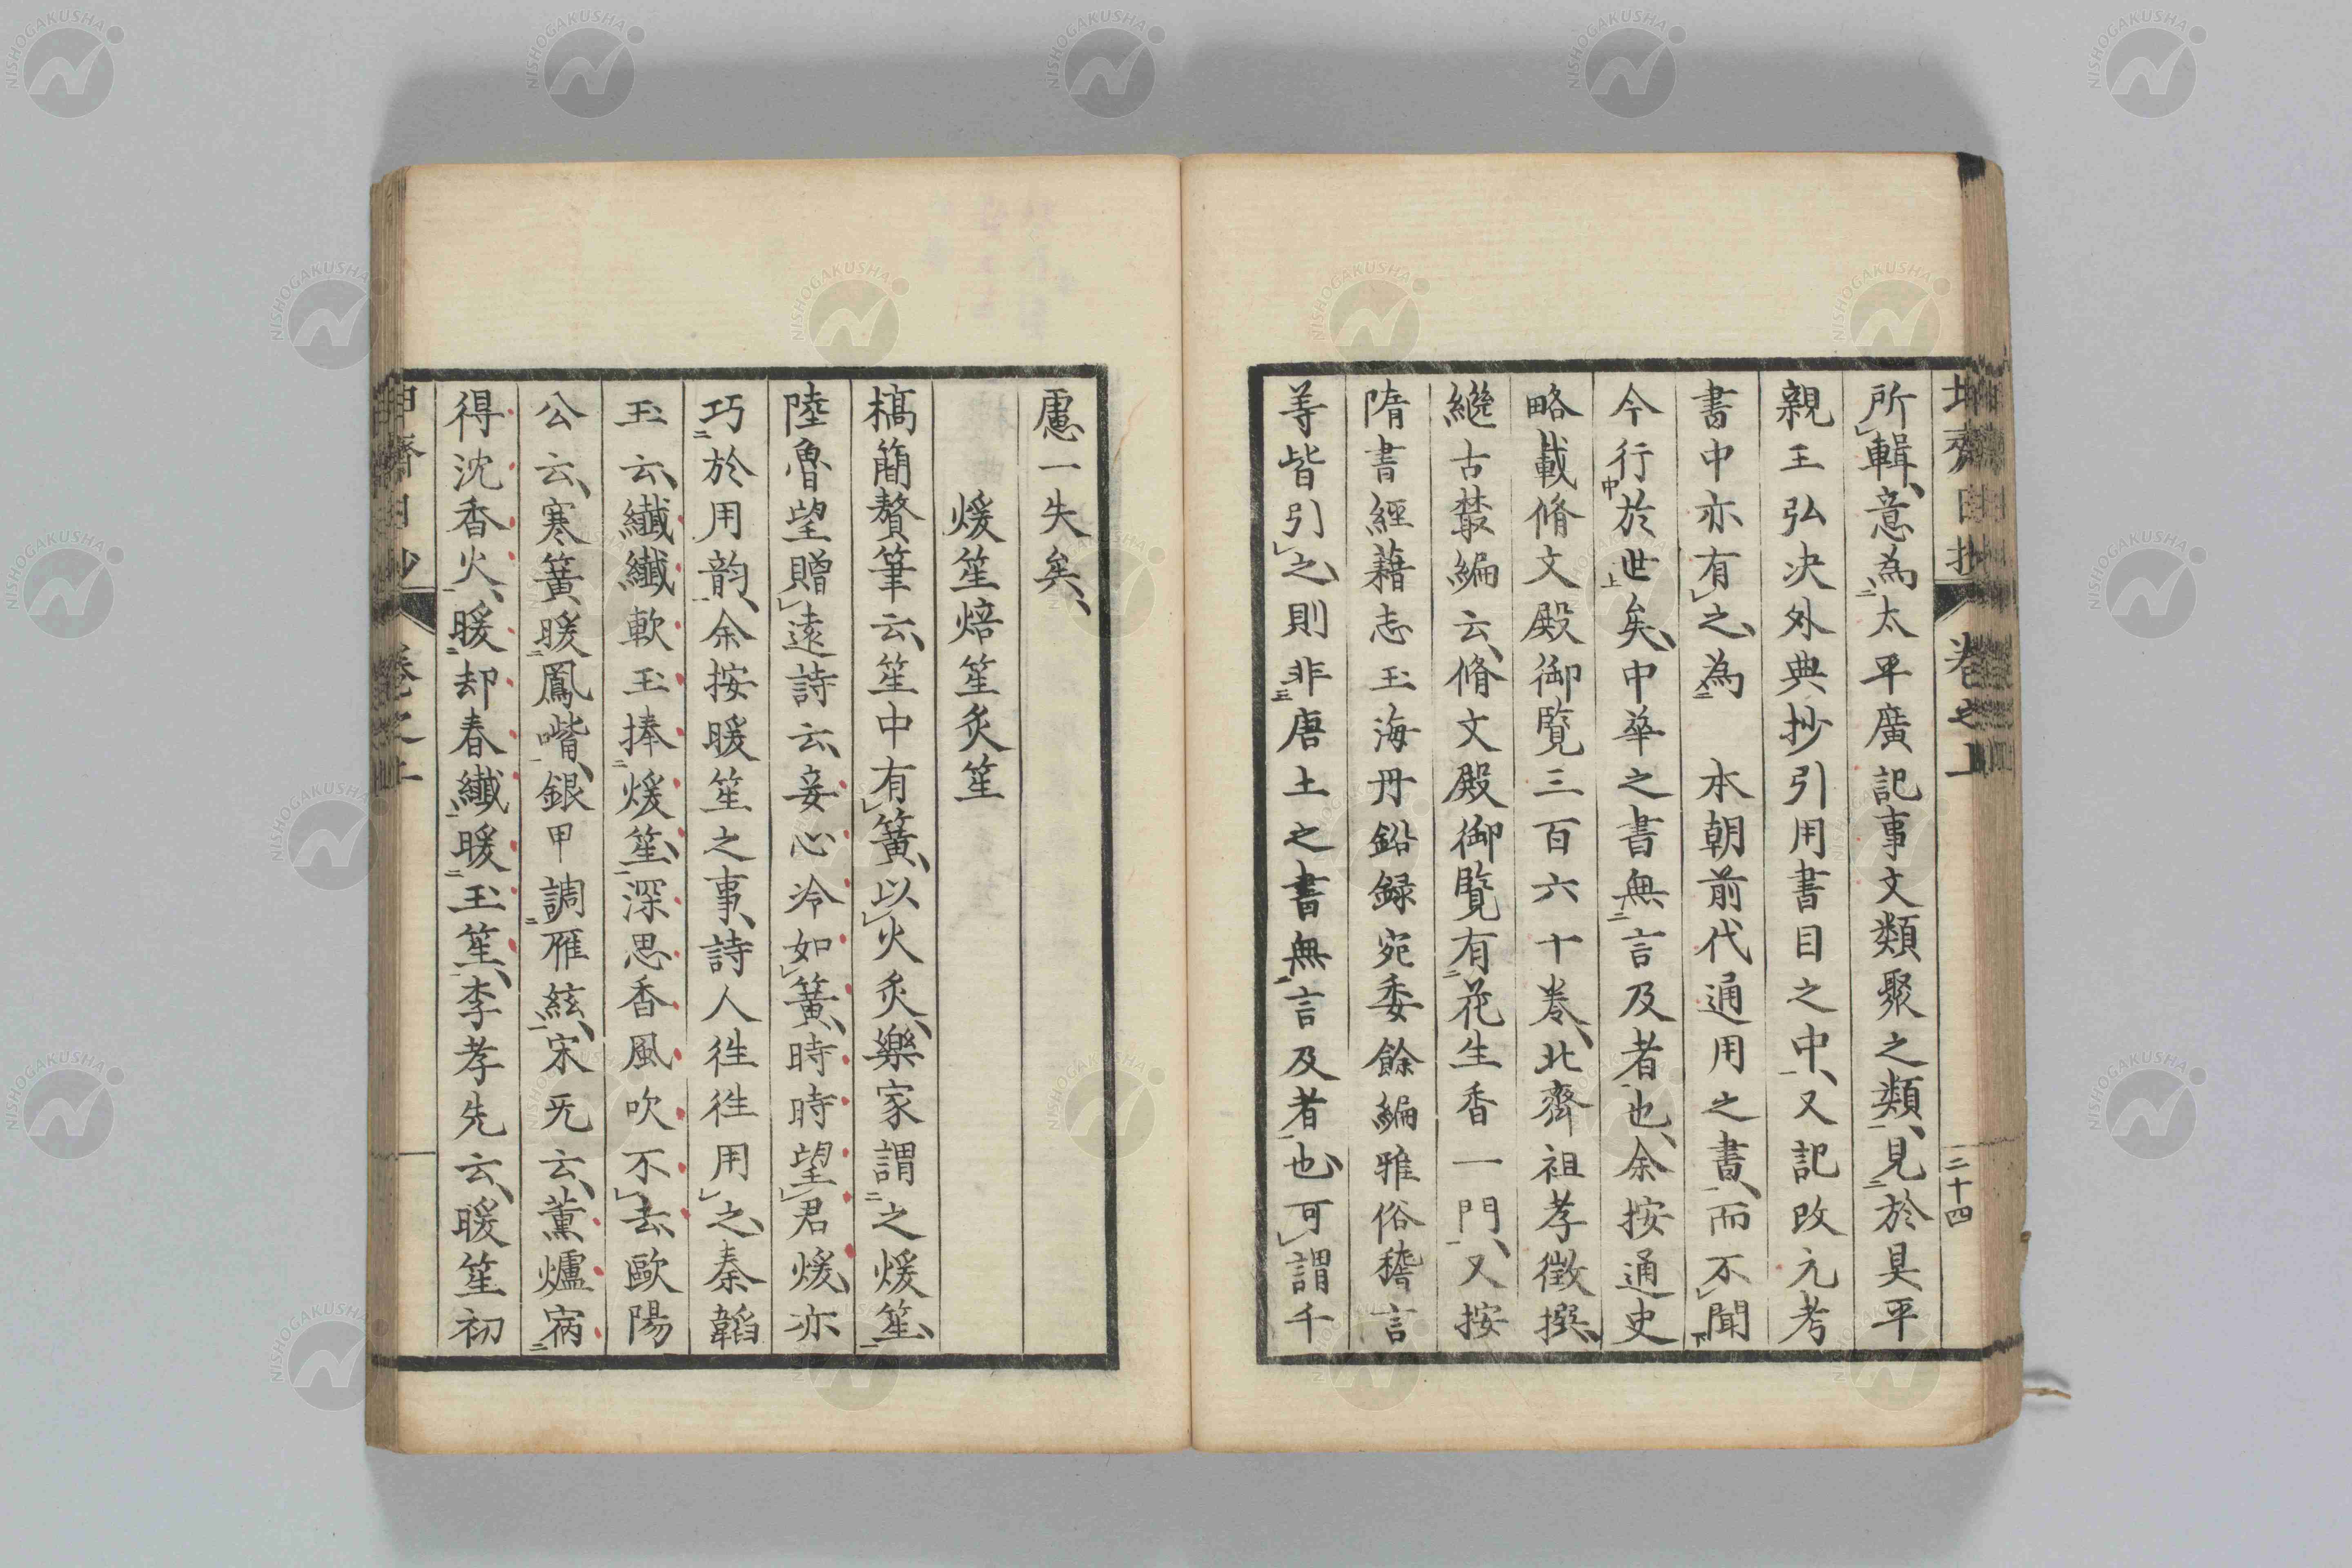 所輯、意為太平廣記事文類聚之類、見於具平
親王弘決外典抄引用書目之中、又記改元考
書中亦有之、為　本朝前代通用之書、而不聞
今行於世矣、中華之書無言及者也、余按通史
略載脩文殿御覧三百六十巻、北齊祖孝徵撰、
繼古叢編云、脩文殿御覧有花生香一門、又按
隋書經藉志玉海丹鉛録宛委餘編雅俗稽言
等皆引之、則非唐土之書無言及者也、可謂千
慮一失矣、
煖笙焙笙炙笙
槁簡贅筆云、笙中有簧、以火炙、樂家謂之煖笙、
陸魯望贈遠詩云、妾心冷如簧、時時望君煖、亦
巧於用韵、余按暖笙之事、詩人徃徃用之、秦韜
玉云、纖纖軟玉捧煖笙、深思香風吹不去歐陽
公云、寒簧暖鳳嘴、銀甲調雁絃、宋旡云、薰爐病
得沈香火、暖却春纖暖玉笙、李孝先云、暖笙初
卷之上
二十四
NISHOGAKUSHA